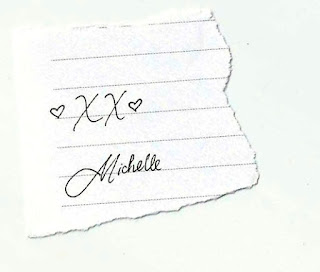 ♡XX♡
Michelle